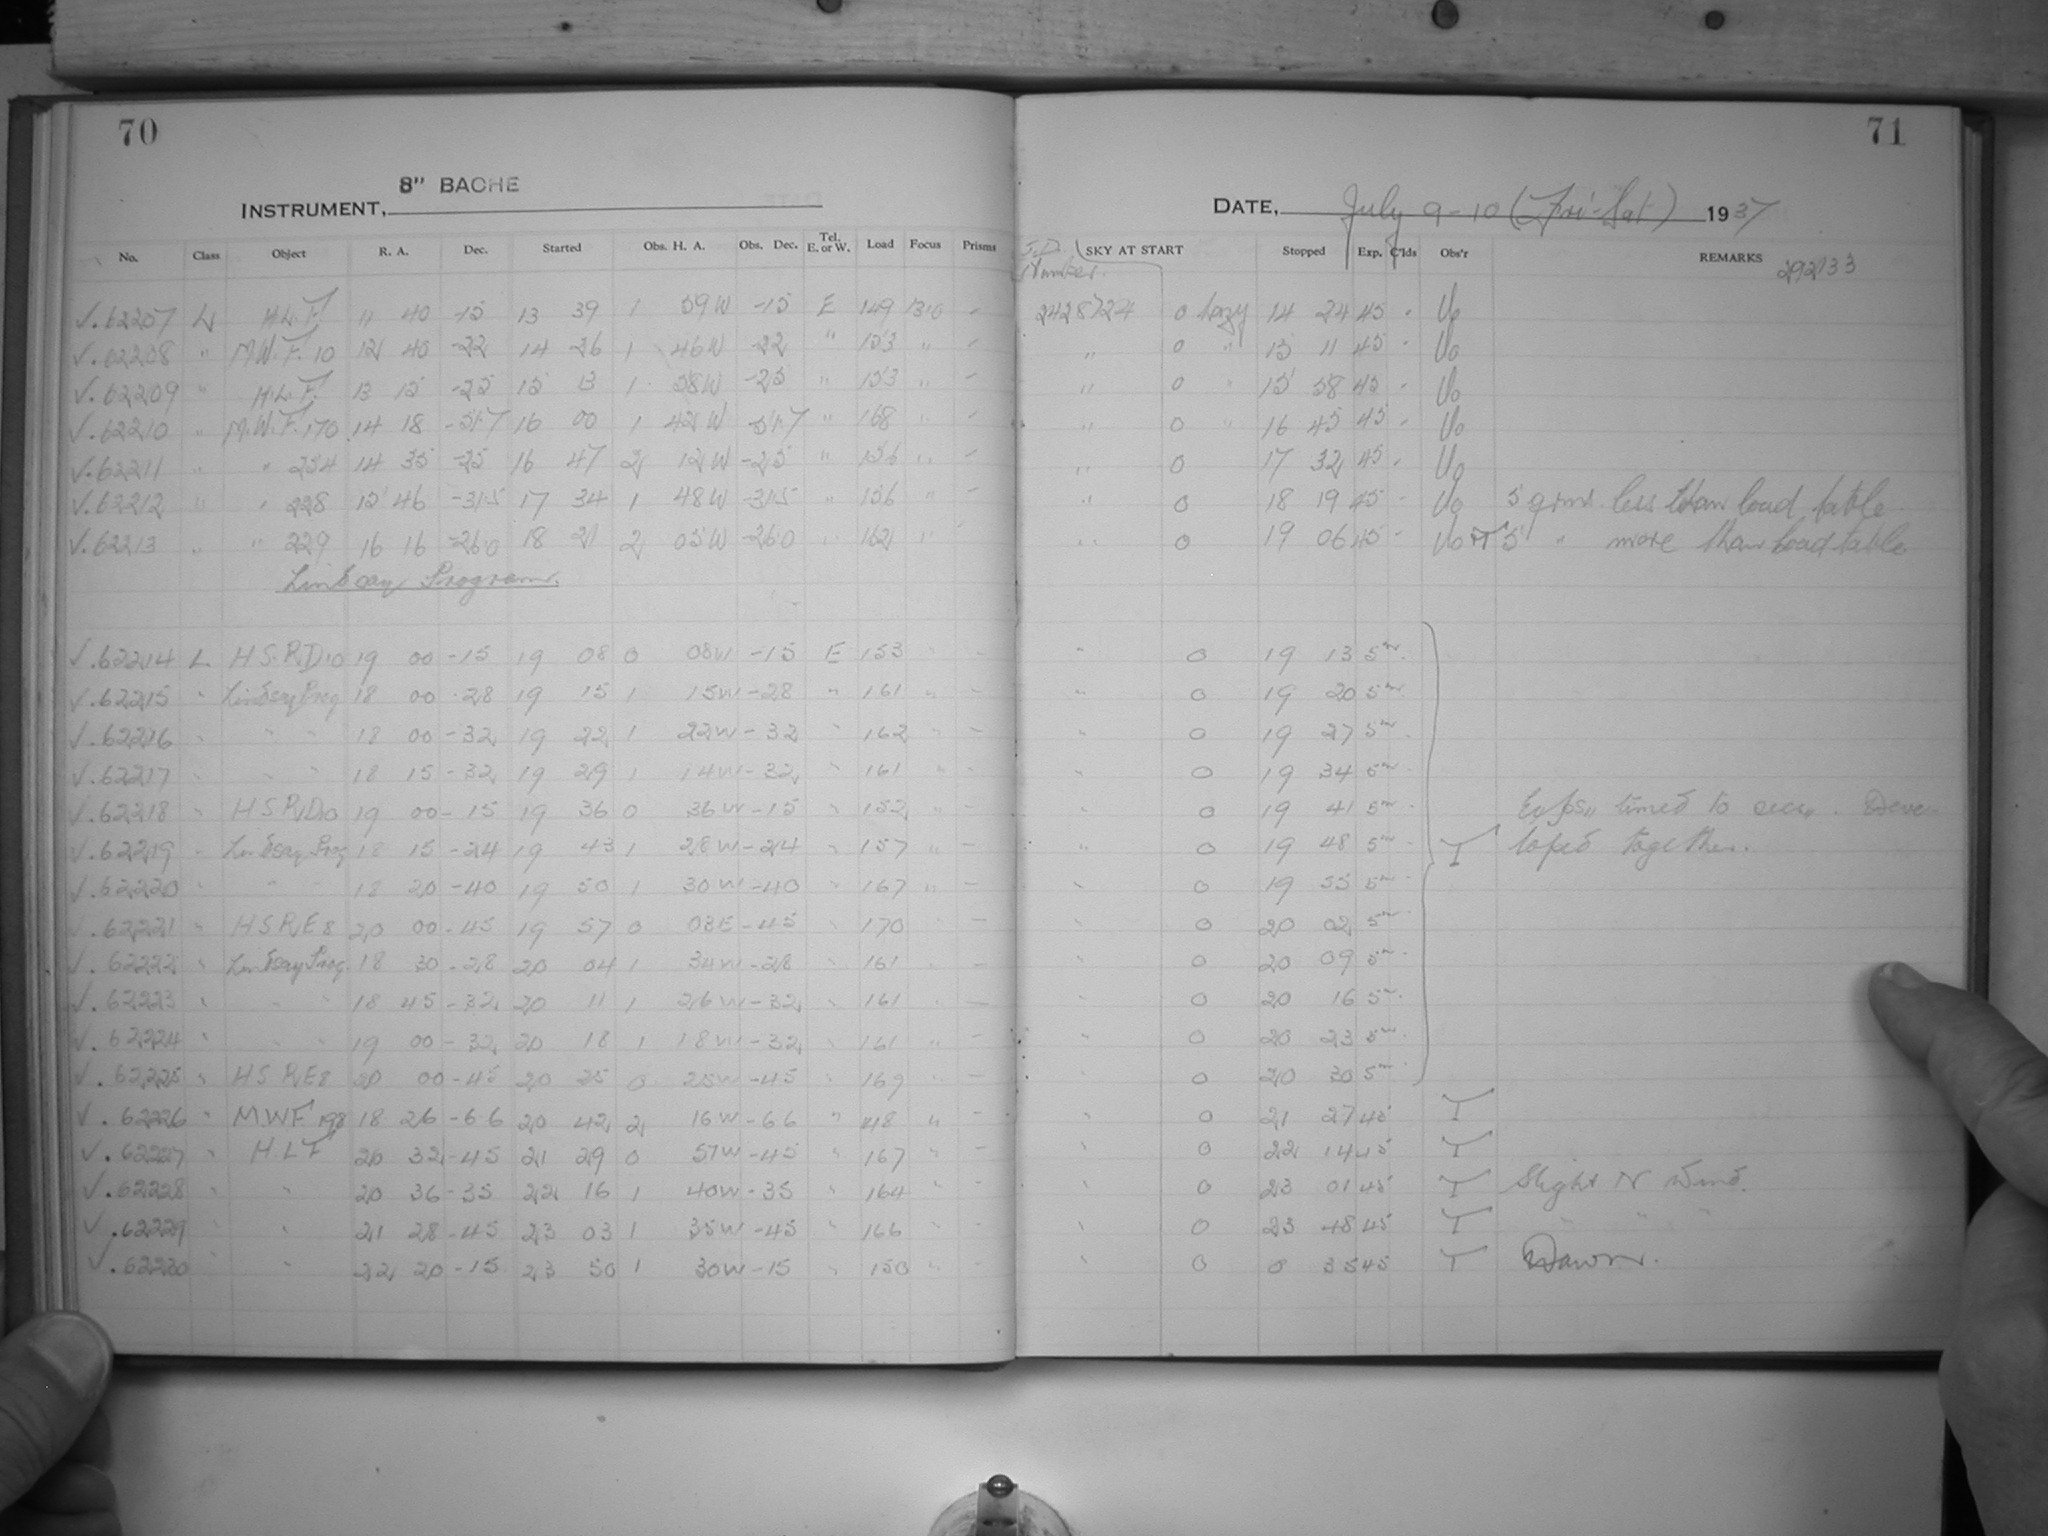 70
8" BACHE
INSTRUMENT,
No. Class Object R. A. Dec. Started Obs. H. A. Obs. Dec. Tel. E. or W. Load Focus Prisms
√.62207 L H.L.F. 11 40 -15 13 39 1 59W -15 E 149 13.0 -
√.62208 " M.W.F. 10 12 40 -22 14 26 1 46W -22 " 153 " -
√.62209 " H.L.F. 13 15 -25 15 13 1 58W -25 " 153 " -
√.62210 " M.W.F. 170 14 18 -51.7 16 00 1 42W -51.7 " 168 " -
√.62211 " " 254 14 35 -25 16 47 2 12W -25 " 156 " -
√.62212 " " 228 15 46 -31.5 17 34 1 48W -31.5 " 156 " -
√.62213 " " 229 16 16 -26.0 18 21 2 05W -26.0 " 162 " -
Lindsay Program.
√.62214 L H S.R,D10 19 00 -15 19 08 0 08W -15 E 153 " -
√.62215 " Lindsay Prog 18 00 -28 19 15 1 15W -28 " 161 " -
√.62216 " " " 18 00 -32 19 22 1 22W -32 " 162 " -
√.62217 " " " 18 15 -32 19 29 1 14W -32 " 161 " -
√.62218 " H S R,D10 19 00 -15 19 36 0 36W -15 " 152 " -
√.62219 " Lindsay Prog 18 15 -24 19 43 1 28W -24 " 157 " -
√.62220 " " " 18 20 -40 19 50 1 30W -40 " 167 " -
√.62221 " H S R,E8 20 00 -45 19 57 0 03E -45 " 170 " -
√.62222 " Lindsay Prog. 18 30 -28 20 04 1 34W -28 " 161 " -
√.62223 " " " 18 45 -32 20 11 1 26W -32 " 161 " -
√.62224 " " " 19 00 -32 20 18 1 18W -32 " 161 " -
√.62225 " H S R,E8 20 00 -45 20 25 0 25W -45 " 169 " -
√.62226 " M.W.F 198 18 26 -6.6 20 42 2 16W -6.6 " 148 "
√.62227 " H L F 20 32 -45 21 29 0 57W -45 " 167 " -
√.62228 " " 20 36 -35 22 16 1 40W -35 " 164 " -
√.62229 " " 21 28 -45 23 03 1 35W -45 " 166 " -
√.62230 " " 22 20 -15 23 50 1 30W -15 " 150 " -
71
DATE, July 9-10 (Fri-Sat) 1937
J.D. Number. SKY AT START Stopped Exp. C'lds Obs'r REMARKS 292133
2428724 0 hazy 14 24 45 - Uo
" 0 " 15 11 45 - Uo
" 0 " 15 58 45 - Uo
" 0 " 16 45 45 - Uo
" 0 17 32 45 - Uo
" 0 18 19 45 - Uo 5 grms. less than load table
" 0 19 06 45 - Uo T 5 " more than load table
" 0 19 13 5m
" 0 19 20 5m
" 0 19 27 5m
" 0 19 34 5m
" 0 19 41 5m Exps,, timed to secs,,. Deve-
" 0 19 48 5m T loped together.
" 0 19 55 5m
" 0 20 02 5m
" 0 20 09 5m
" 0 20 16 5m
" 0 20 23 5m
" 0 20 30 5m
" 0 21 27 45 T
" 0 22 14 45 T
" 0 23 01 45 T Slight N Wind.
" 0 23 48 45 T " " "
" 0 0 35 45 T Dawn.